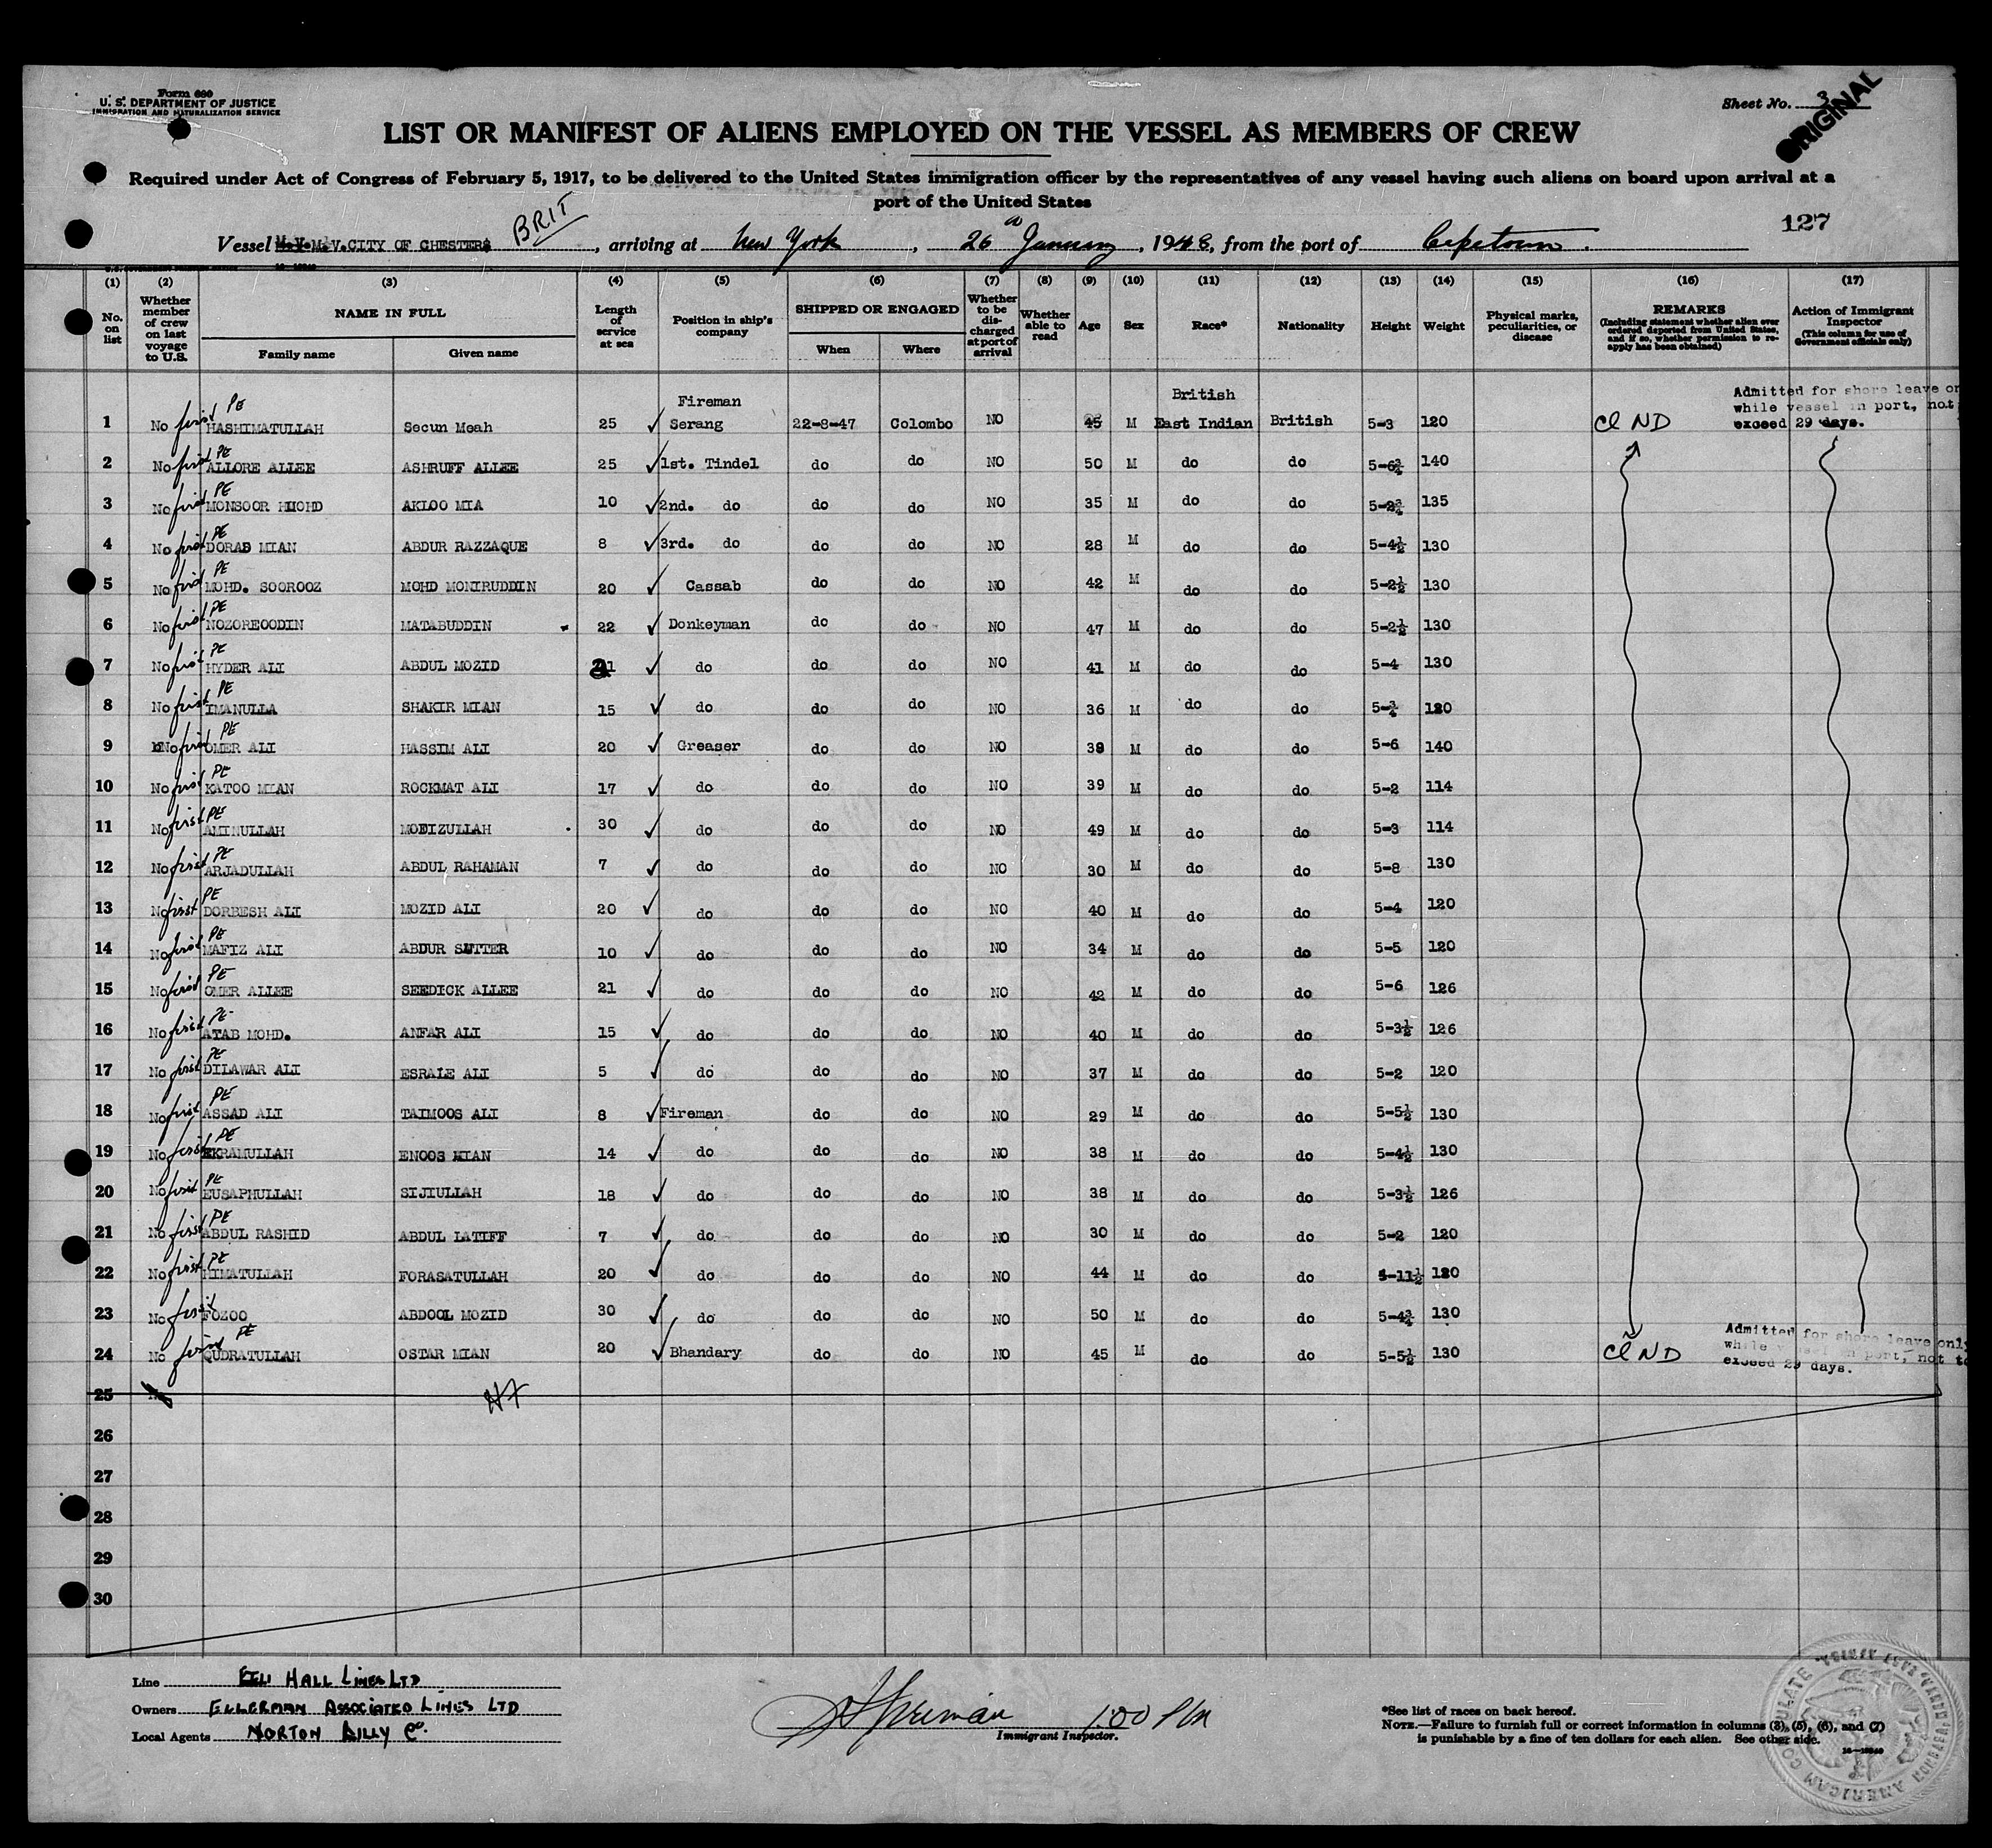 Form 680
U. S. DEPARTMENT OF JUSTICE
IMMIGRATION AND NATURALIZATION SERVICE
Sheet No. 3
ORIGINAL
LIST OR MANIFEST OF ALIENS EMPLOYED ON THE VESSEL AS MEMBERS OF CREW
Required under Act of Congress of February 5, 1917, to be delivered to the United States immigration officer by the representatives of any vessel having such aliens on board upon arrival at a
port of the United States
127
Vessel M.V. CITY OF CHESTER BRIT, arriving at New York, 26 January, 1948, from the port of Capetown.
(1) (2) (3) (4) (5) (6) (7) (8) (9) (10) (11) (12) (13) (14) (15) (16) (17)
No. on list Whether member of crew on last voyage to U.S. NAME IN FULL Family name Given name Length of service at sea Position in ship's company SHIPPED OR ENGAGED When Where Whether to be discharged at port of arrival Whether able to read Age Sex Race* Nationality Height Weight Physical marks, peculiarities, or disease REMARKS (Including statement whether alien ever ordered deported from United States, and if so, whether permission to reapply has been obtained) Action of Immigrant Inspector (This column for use of Government officials only)
1 No first PE HASHIMATULLAH Secun Meah 25 Fireman Serang 22-8-47 Colombo NO 45 M British East Indian British 5-3 120 Cl ND Admitted for shore leave on while vessel in port, not exceed 29 days.
2 No first PE ALLORE ALLEE ASHRUFF ALLEE 25 1st. Tindel do do NO 50 M do do 5-6¾ 140
3 No first PE MONSOOR MOHD AKLOO MIA 10 2nd. do do do NO 35 M do do 5-2¾ 135
4 No first PE DORAB MIAN ABDUR RAZZAQUE 8 3rd. do do do NO 28 M do do 5-4½ 130
5 No first PE MOHD. SOOROOZ MOHD MONIRUDDIN 20 Cassab do do NO 42 M do do 5-2½ 130
6 No first PE NOZOREOODIN MATABUDDIN 22 Donkeyman do do NO 47 M do do 5-2½ 130
7 No first PE HYDER ALI ABDUL MOZID 21 do do do NO 41 M do do 5-4 130
8 No first PE IMANULLA SHAKIR MIAN 15 do do do NO 36 M do do 5-¾ 120
9 No first PE OMER ALI HASSIM ALI 20 Greaser do do NO 38 M do do 5-6 140
10 No first PE KATOO MIAN ROCKMAT ALI 17 do do do NO 39 M do do 5-2 114
11 No first PE AMINULLAH MOEIZULLAH 30 do do do NO 49 M do do 5-3 114
12 No first PE ARJADULLAH ABDUL RAHAMAN 7 do do do NO 30 M do do 5-8 130
13 No first PE DORBESH ALI MOZID ALI 20 do do do NO 40 M do do 5-4 120
14 No first PE MAFIZ ALI ABDUR SUTTER 10 do do do NO 34 M do do 5-5 120
15 No first PE OMER ALLEE SEEDICK ALLEE 21 do do do NO 42 M do do 5-6 126
16 No first PE ATAB MOHD. ANFAR ALI 15 do do do NO 40 M do do 5-3½ 126
17 No first PE DILAWAR ALI ESRALE ALI 5 do do do NO 37 M do do 5-2 120
18 No first PE ASSAD ALI TAIMOOS ALI 8 Fireman do do NO 29 M do do 5-5½ 130
19 No first PE EKRAMULLAH ENOOS MIAN 14 do do do NO 38 M do do 5-4½ 130
20 No first PE EUSAPHULLAH SIJIULLAH 18 do do do NO 38 M do do 5-3½ 126
21 No first PE ABDUL RASHID ABDUL LATIFF 7 do do do NO 30 M do do 5-2 120
22 No first PE HIMATULLAH FORASATULLAH 20 do do do NO 44 M do do 4-11½ 120
23 No first FOZOO ABDOOL MOZID 30 do do do NO 50 M do do 5-4¾ 130
24 No first PE QUDRATULLAH OSTAR MIAN 20 Bhandary do do NO 45 M do do 5-5½ 130 Cl ND Admitted for shore leave only while vessel in port, not to exceed 29 days.
25 No
26
27
28
29
30
Line ELL HALL LINES LTD
Owners ELLERMAN ASSOCIATED LINES LTD
Local Agents NORTON LILLY Co.
1:00 PM
Immigrant Inspector.
*See list of races on back hereof.
NOTE.—Failure to furnish full or correct information in columns (3), (5), (6), and (7)
is punishable by a fine of ten dollars for each alien. See other side.
AMERICAN CONSULATE